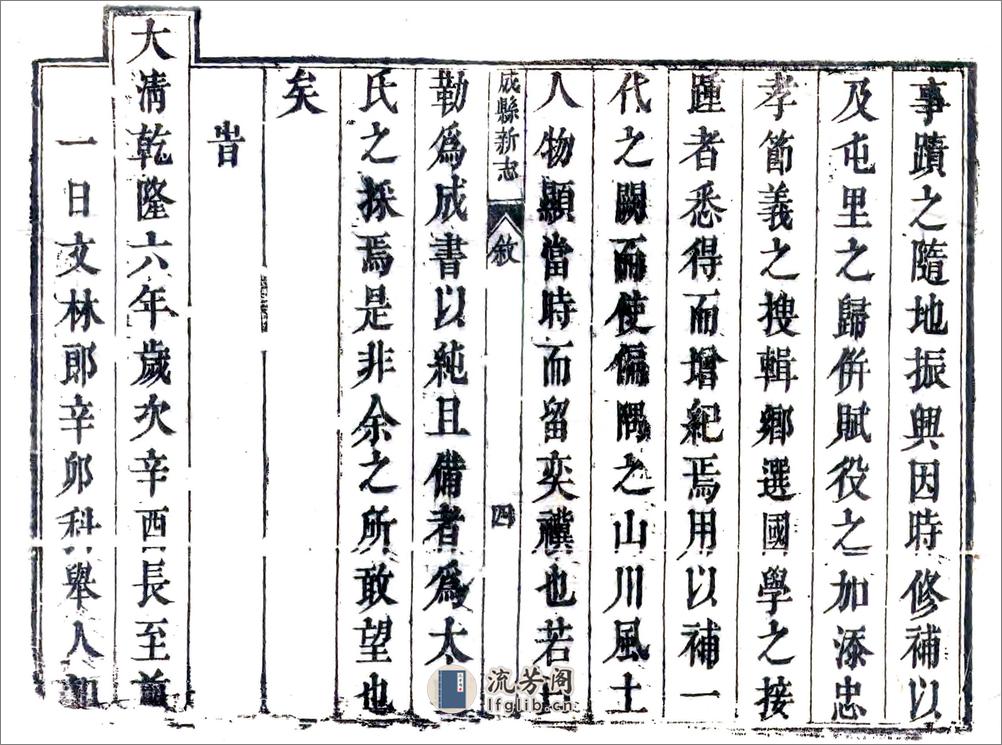 事蹟之隨地振興因時修補以
及屯里之歸併賦役之加添忠
孝節義之搜輯鄉選國學之接
踵者悉得而增紀焉用以補一
代之闕而使偏隅之山川風土
人物顯當時而留奕禩也若
成縣新志 敘 四
勒爲成書以純且備者爲太
氏之採焉是非余之所敢望也
矣
旹
大清乾隆六年歲次辛酉長至前
一日文林郎辛卯科舉人
流芳阁
lfglib.cn